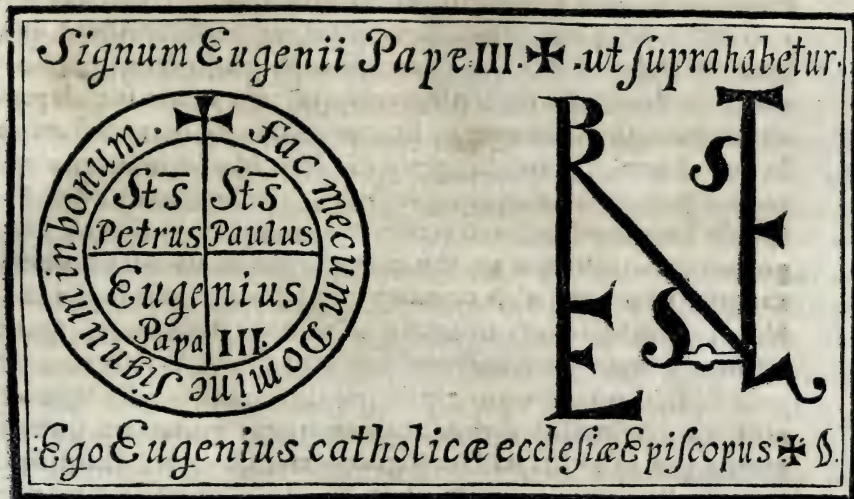 Signum Eugenii Papę III. ✠ .ut ſupra habetur.
✠ fac mecum Domine ſignum in bonum.
Sts̄ Sts̄
Petrus Paulus
Eugenius
Papa III.
Ego Eugenius catholicæ eccleſiæ Epiſcopus ✠ S.